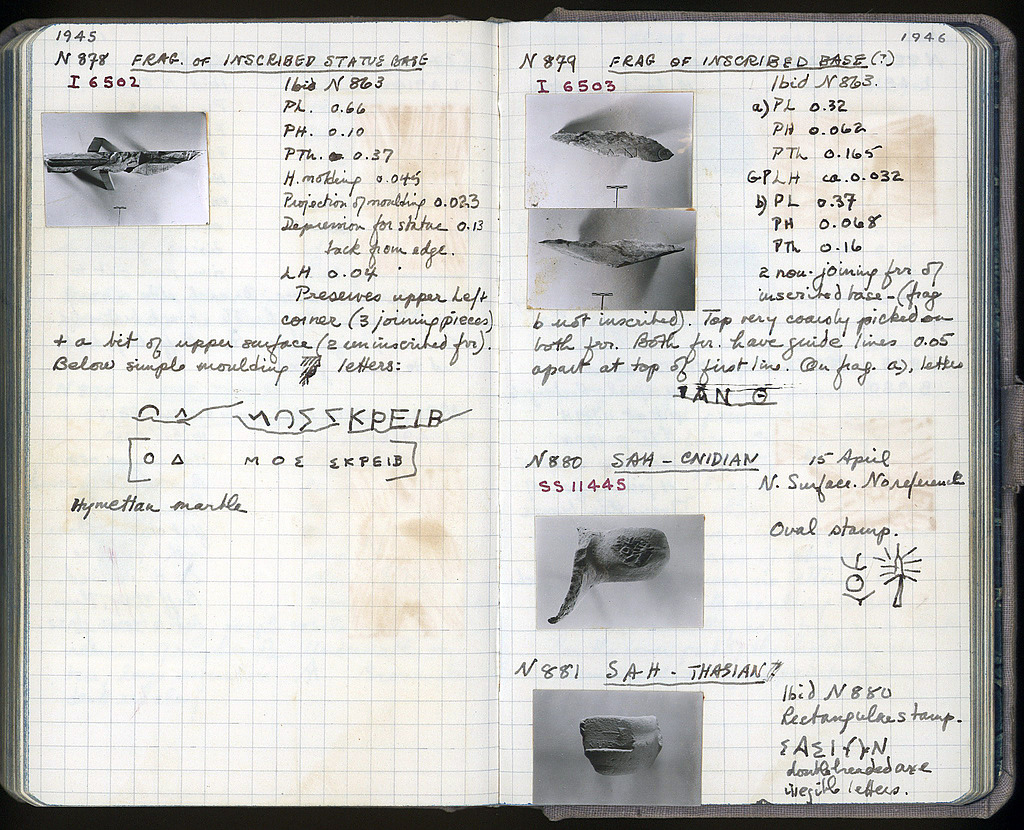 1945
N 878 FRAG. OF INSCRIBED STATUE BASE
I 6502
Ibid N 863
PL. 0.66
PH. 0.10
PTh. 0.37
H. molding 0.045
Projection of moulding 0.023
Depression for statue 0.13
back from edge.
LH 0.04
Preserves upper left
corner (3 joining pieces)
+ a bit of upper surface (2 uninscribed frr).
Below simple moulding letters:
ΜΟΣΣΚΡΕΙΒ
[Ο Δ ΜΟΣ ΣΚΡΕΙΒ]
Hymettan marble
1946
N 879 FRAG OF INSCRIBED BASE (?)
I 6503
Ibid N 863.
a) PL 0.32
PH 0.062
PTh 0.165
GPLH ca. 0.032
b) PL 0.37
PH 0.068
PTh 0.16
2 non-joining frr of
inscribed base - (frag
b not inscribed). Top very coarsely picked on
both frr. Both frr. have guide lines 0.05
apart at top of first line. On frag. a), letters
ΑΝ Θ
N 880 SAH - CNIDIAN 15 April
SS 11445
N. Surface. No reference
Oval stamp.
N 881 SAH - THASIAN?
Ibid N 880
Rectangular stamp.
double headed axe
illegible letters.